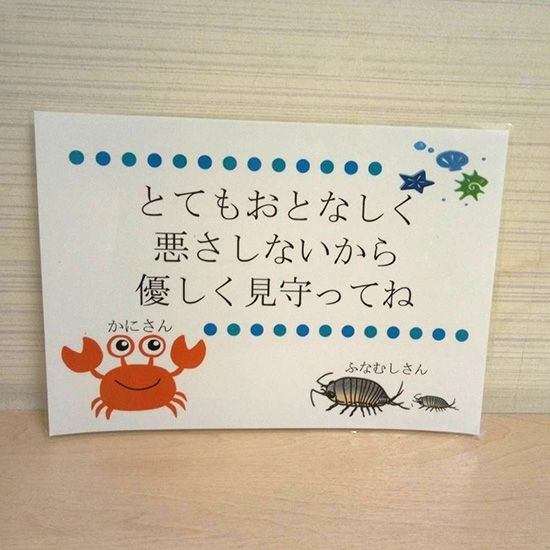 とてもおとなしく
悪さしないから
優しく見守ってね
かにさん
ふなむしさん